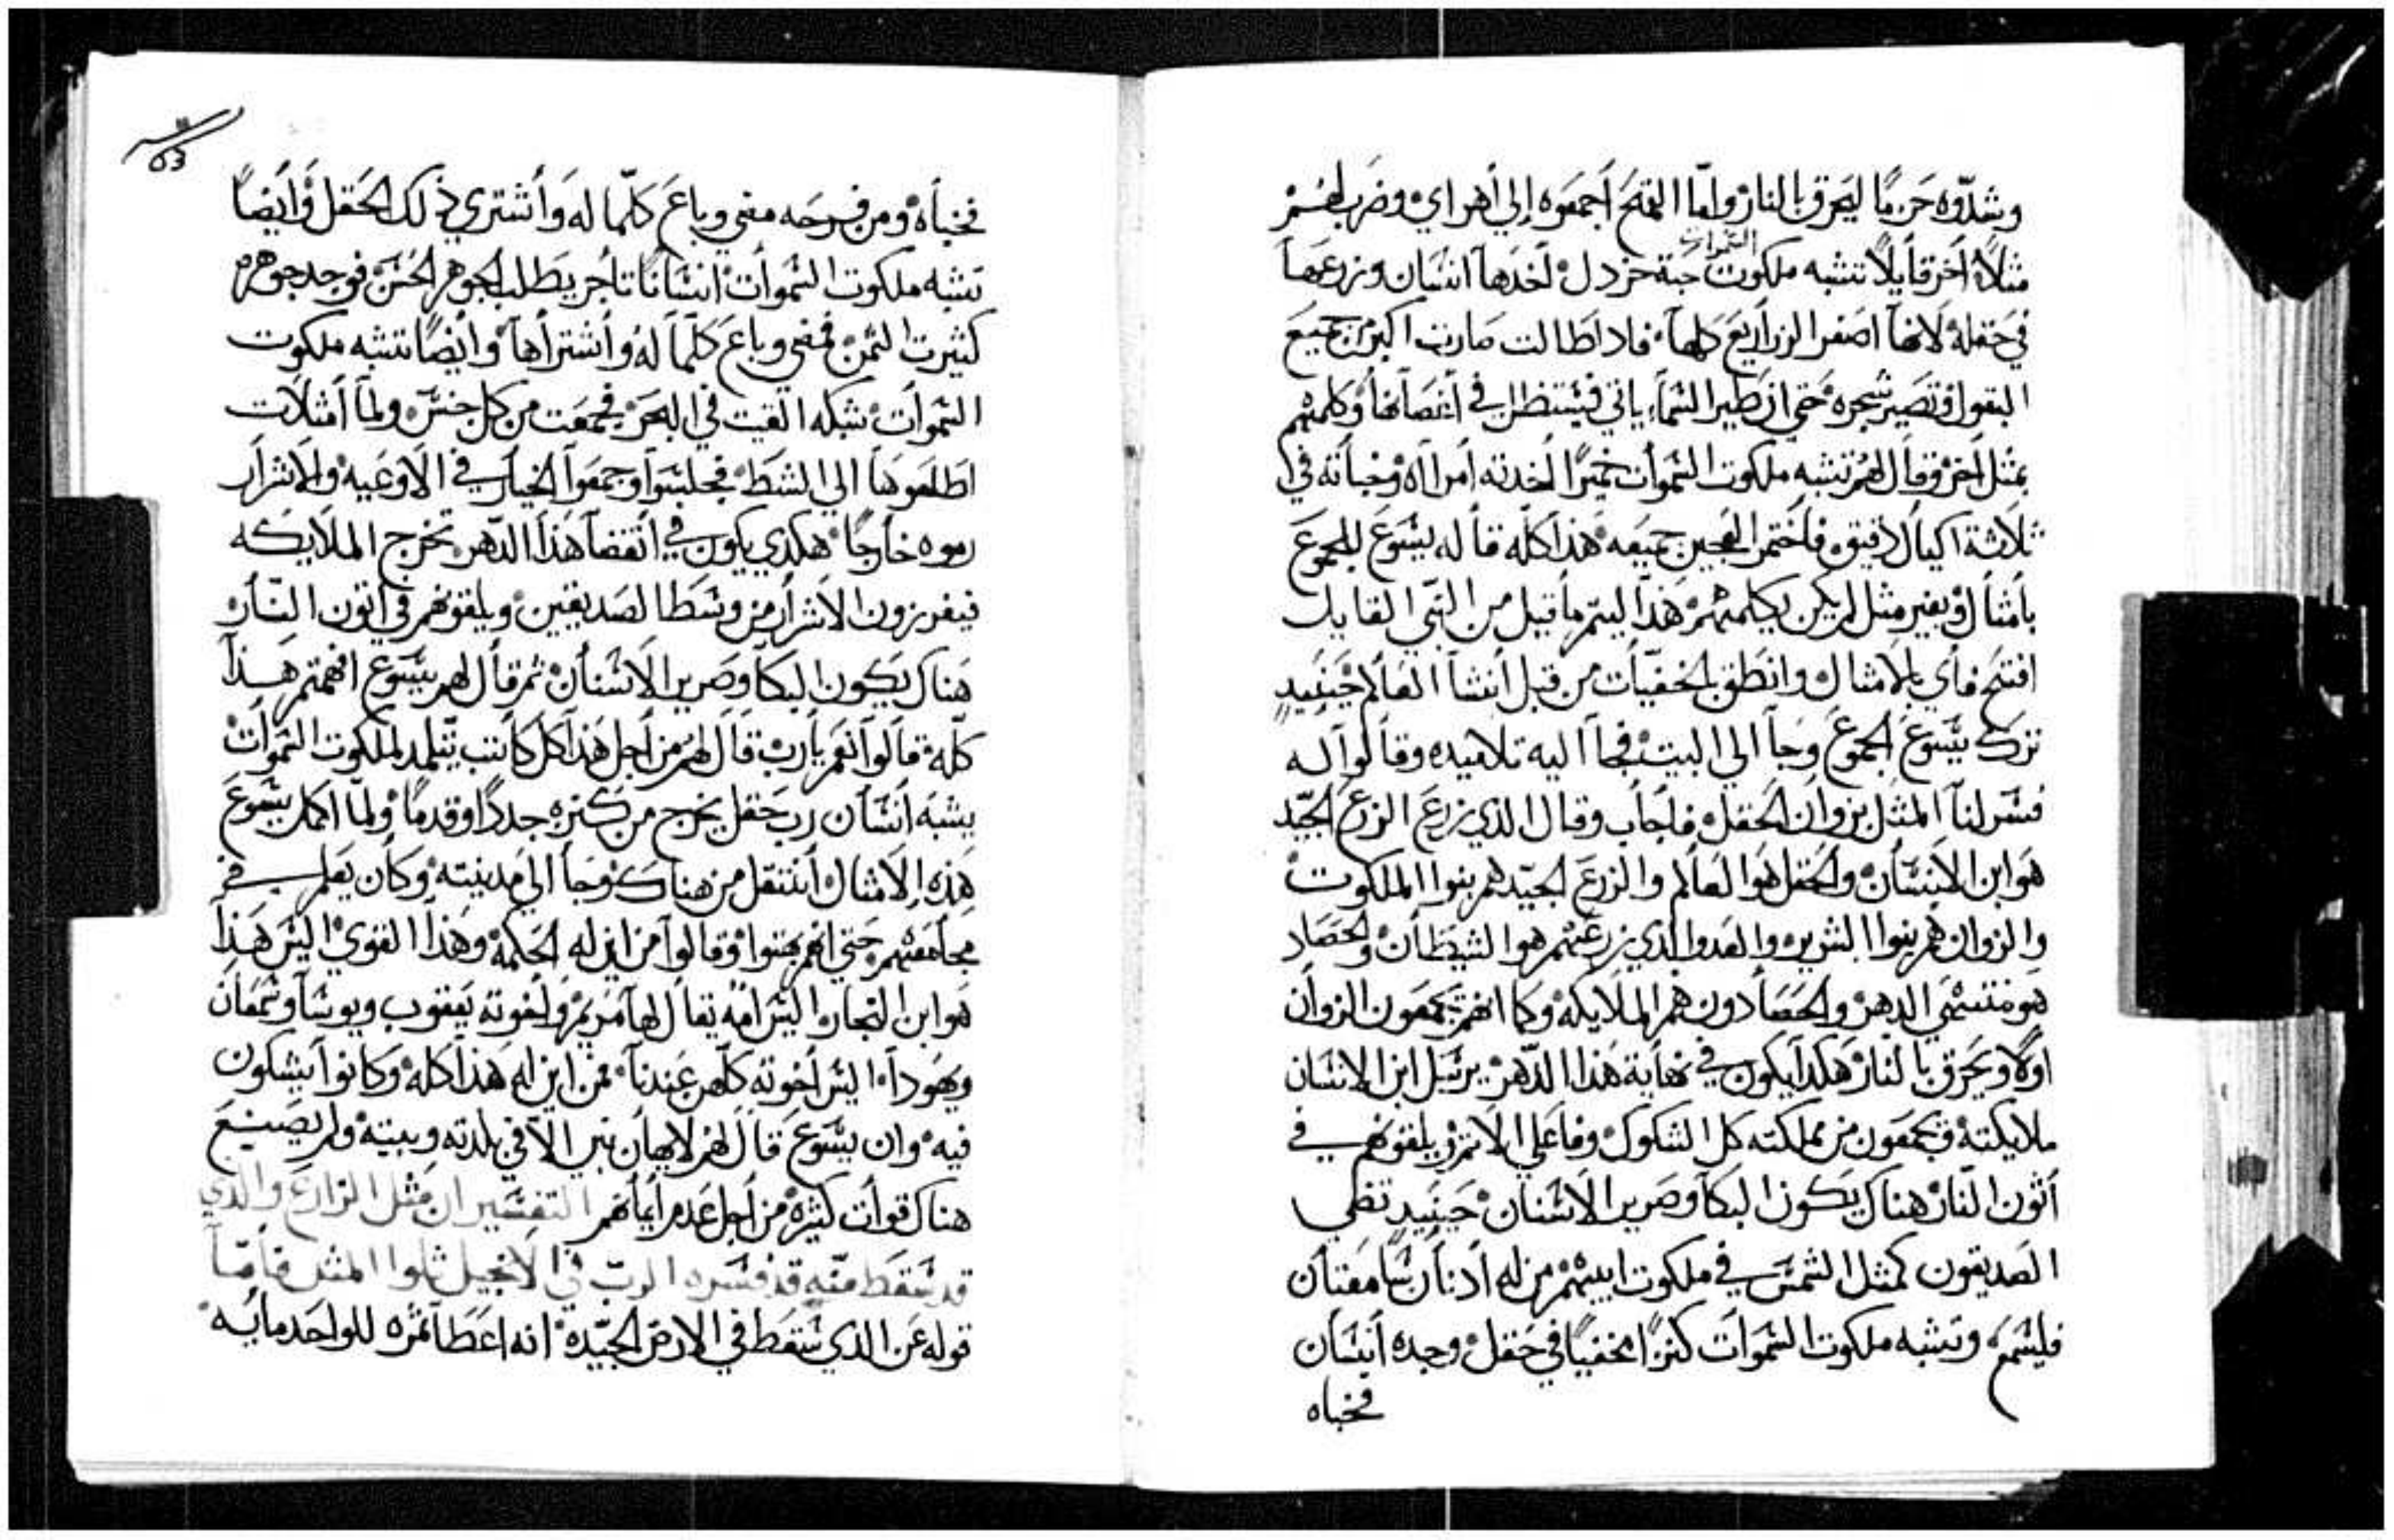 وشدّوه حزمًا ليحرق بالنار ولمّا القمح أجمعوه إلي أهراي وضرب لهم
السموات
مثلاً أخر قايلاً تشبه ملكوت حبة خردل أخدها انسان وزرعها
في حقله لانها اصغر الزراريع كلها فادا طالت صارت اكبر من جميع
البقول وتصير شجره حتي ان طير السما ياتي فيستظل في أغصانها وكلمهم
بمثل أخر وقال لهم تشبه ملكوت السموات خميرًا أخدته امراه وخباته في
ثلاثة اكيال دقيق فاختمر العجين جميعه هذا كله قاله يسوع للجموع
بامثال وبغير مثل لم يكن يكلمهم هذا ليتم ما قيل من النبي القايل
افتح فاي بالامثال وانطق بالخفيات من قبل أنشا العالم حينيد
ترك يسوع الجموع وجا الي البيت فجا اليه تلاميده وقالوا له
فسر لنا المثل بزوان الحقل فاجاب وقال الدي زرع الزرع الجيّد
هو ابن الانسان والحقل هو العالم والزرع الجيّد هم بنوا الملكوت
والزوان هم بنوا الشرير والعدوا الدي زرعهم هوا الشيطان والحصاد
هو منتهي الدهر والحصادون هم الملايكه وكما انهم يجمعون الزوان
اولا ويحرق بالنار هكدا يكون في نهاية هذا الدّهر يرسل ابن الانسان
ملايكته فيجمعون من مملكته كل الشكوك وفاعلي الاثم ويلقونهم في
أتون النار هناك يكون البكا وصرير الاسنان حينيد تضي
الصديقون كمثل الشمس في ملكوت ابيهم من له أدنان سامعتان
فليسمع وتشبه ملكوت السموات كنزًا مخفيًا في حقل وجده أنسان
فخباه
53
فخباه ومن فرحه مضي وباع كلّما له وأشتري ذلك الحقل وأيضًا
تشبه ملكوت السموات انسانًا تاجر يطلب الجوهر الحسن فوجد جوهره
كثيرت الثمن فمضي وباع كلّما له وأشتراها وأيضًا تشبه ملكوت
السموات شبكه القيت في البحر فجمعت من كل جنس ولما أمتلات
اطلعوها الي الشط فجلسوا وجمعوا الخيار في الاوعيه والاشرار
رموه خارجًا هكدي يكون في انقضا هذا الدّهر تخرج الملايكه
فيفرزون الاشرار من وسط الصديقين ويلقونهم في أتون النار
هناك يكون البكا وصرير الاسنان ثم قال لهم يسوع افهمتم هذا
كلّه قالوا نعم يارب قال لهم من أجل هذا كل كاتب يتلمد لملكوت السموات
يشبه أنسان رب حقل يخرج من كنزه جددًا وقدمًا ولمّا اكمل يسوع
هذه الامثال أنتقل من هناك وجا الي مدينته وكان يعلم في
مجامعهم حتي انهم بهتوا وقالوا من اين له الحكمه وهذا القوي اليس هذا
هو ابن النجار اليس امه يقال لها مريم وأخوته يعقوب ويوسا وشمعان
ويهودا اليس أخوته كلهن عندنا فمن اين له هذا كله وكانوا يشكون
فيه وان يسوع قال لهم لايهان نبي الا في بلدته وبيته ولم يصنع
هناك قوات كثيره من أجل عدم أيمانهم التفسير ان مثل الزارع والدي
قد سقط منه قد فسره الرب في الانجيل تلوا المثل فامّا
قوله عن الدي سقط في الارض الجيّده انه اعطا ثمره للواحد مايه